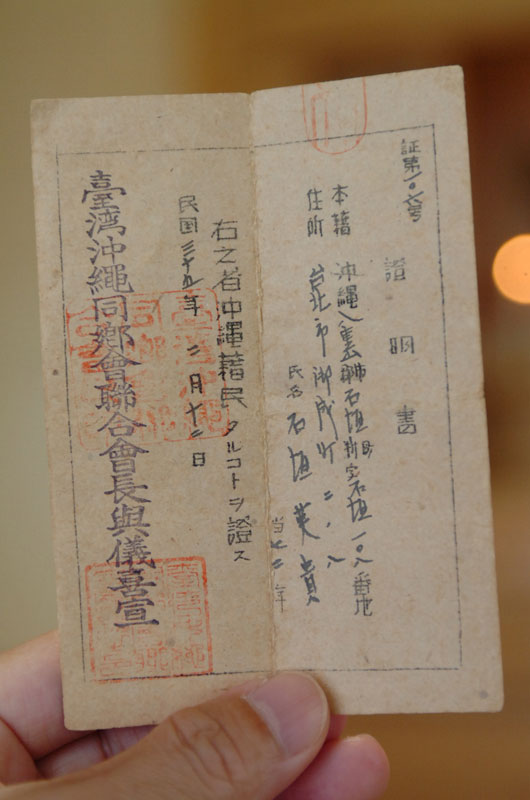 証第一〇六号
證明書
本籍 沖縄 八重山郡石垣町字石垣一〇八番地
住所 台北市御成町二ノ八
氏名 石垣英
当 年
右之者沖縄籍民タルコトヲ證ス
民国三十五年二月十二日
臺湾沖縄同鄉會聯合會長與儀喜宣